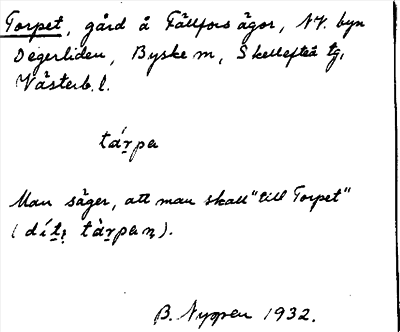 Torpet, gård å Fällfors ägor, N.V. byn
Degerliden, Byske sn, Skellefteå tg,
Västerb. l.
tárpa
Man säger, att man skall "till Torpet"
B. Nygren 1932.